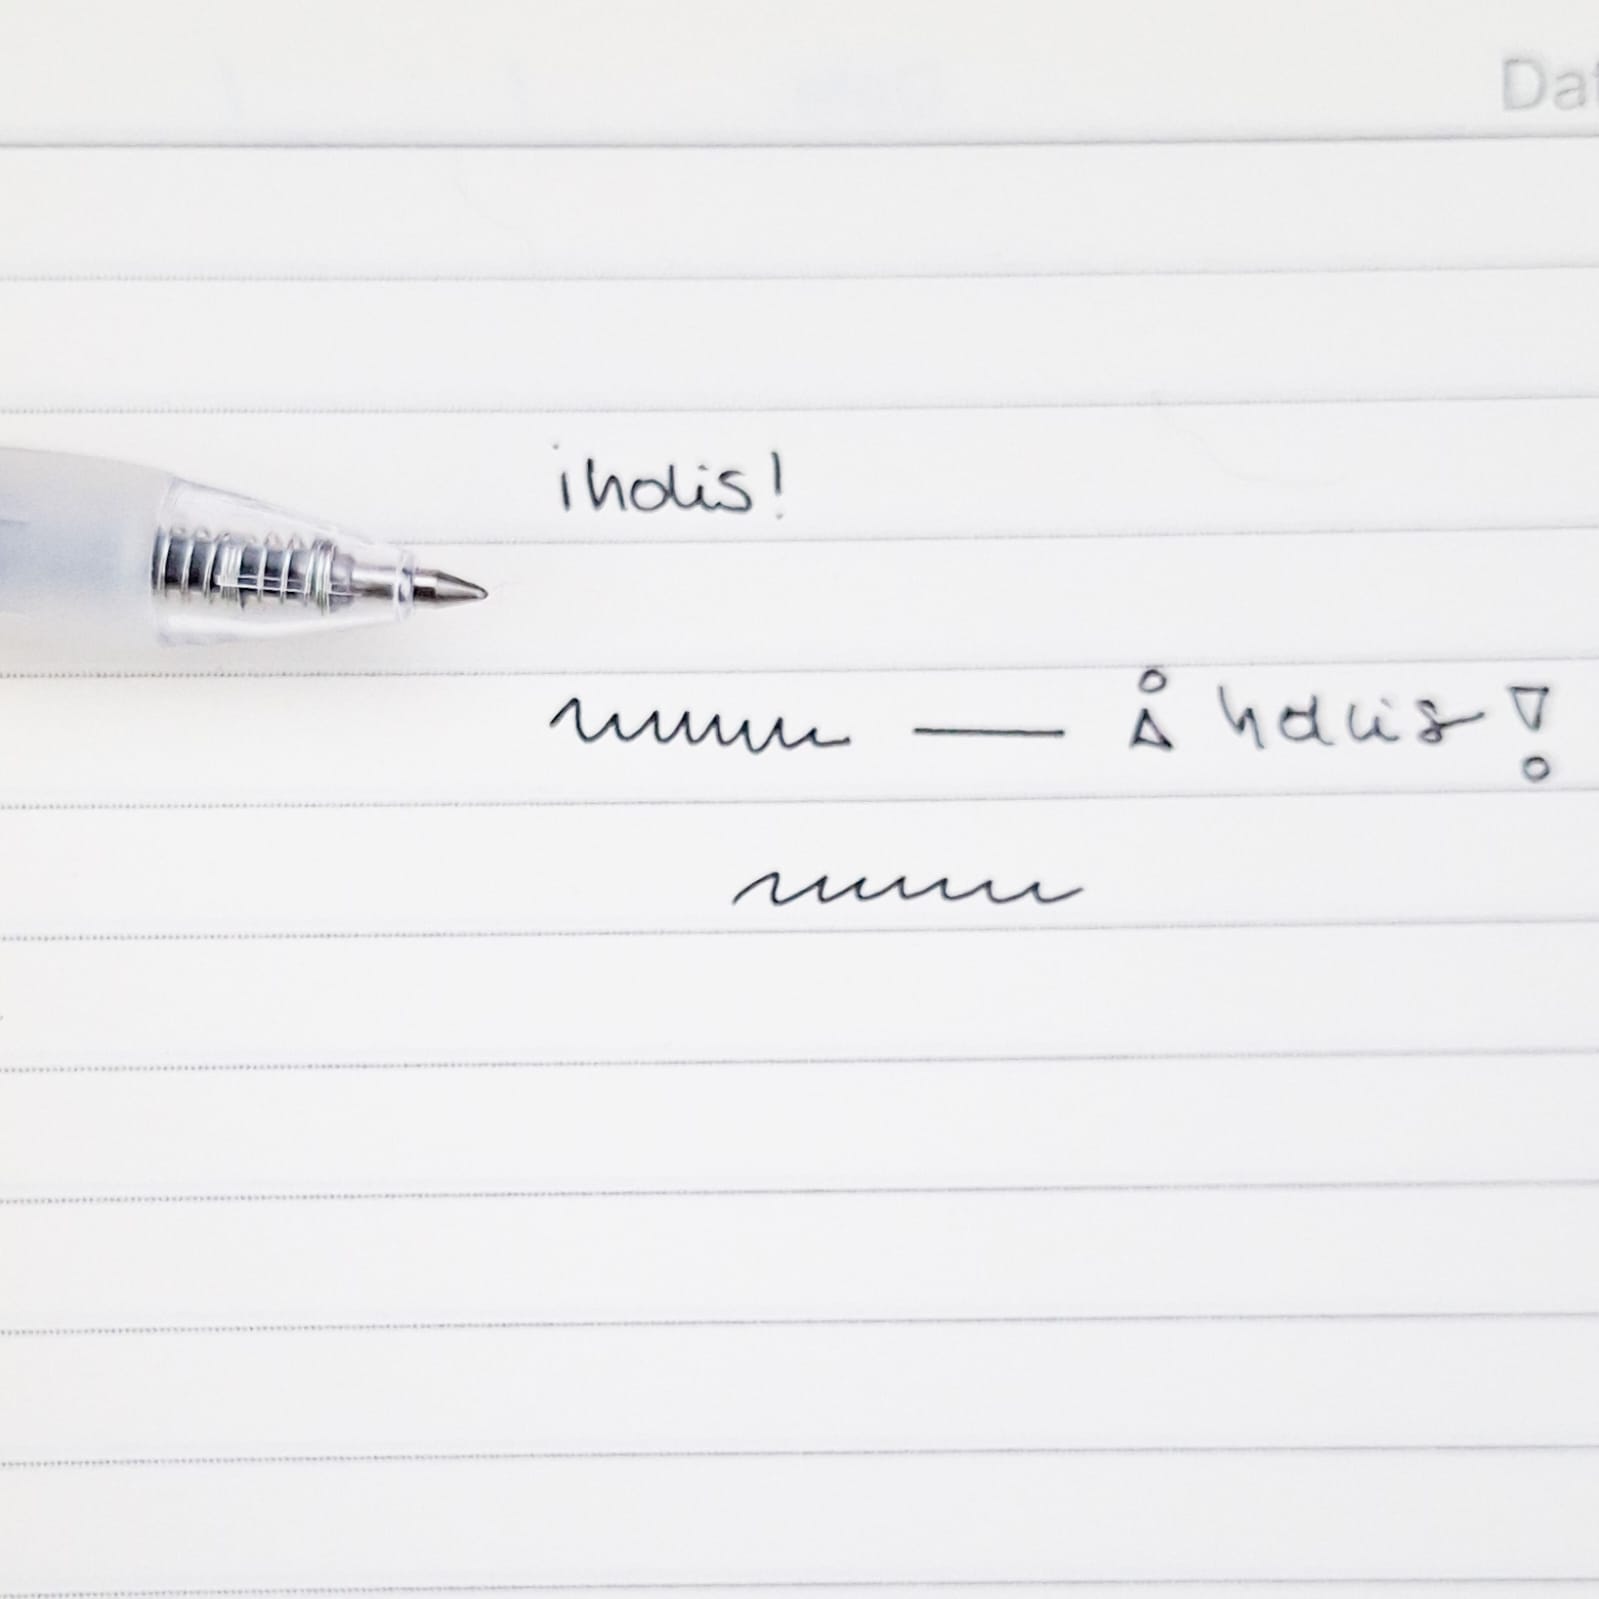 Dat
¡holis!
— ¡holis!